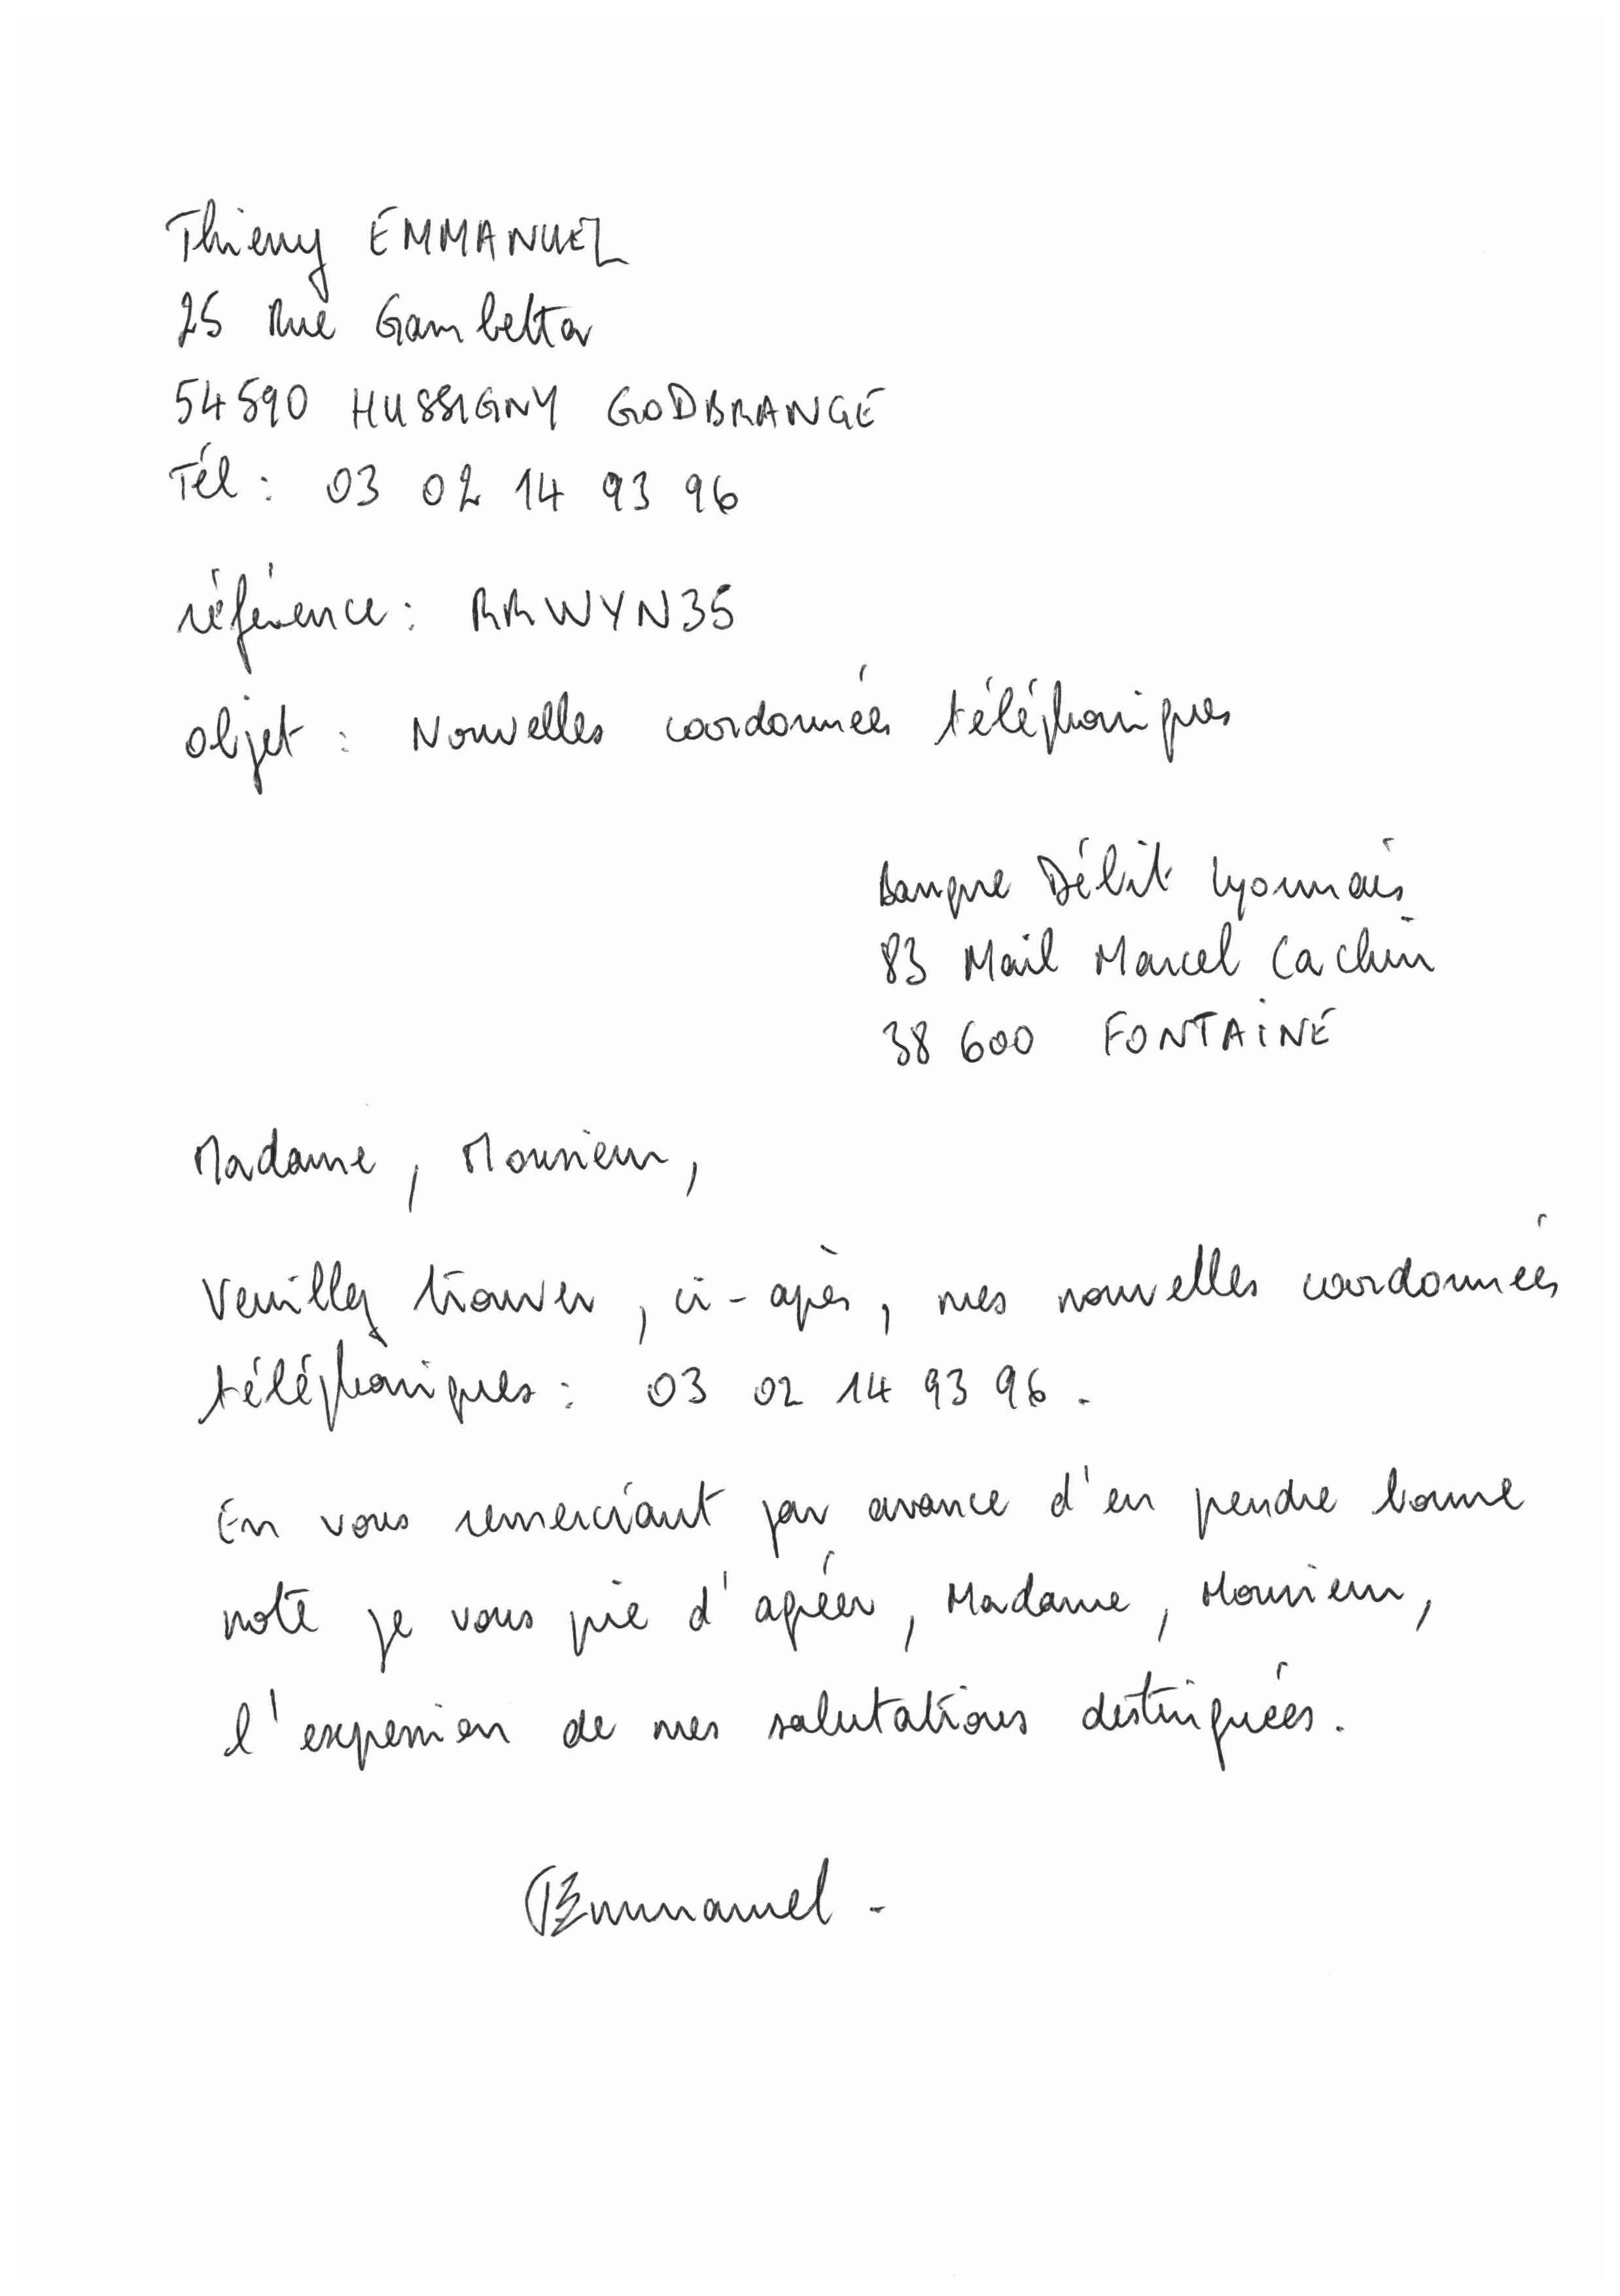 Thierry EMMANUEL
25 Rue Gambetta
54590 HUSSIGNY GODBRANGE
Tél : 03 02 14 93 96
référence : RRWYN35
objet : Nouvelles coordonnées téléphoniques
Banque Débit Lyonnais
83 Mail Marcel Cachin
38 600 FONTAINE
Madame, Monsieur,
Veuillez trouver, ci-après, mes nouvelles coordonnées
téléphoniques : 03 02 14 93 96.
En vous remerciant par avance d'en prendre bonne
note je vous prie d'agréer, Madame, Monsieur,
l'expression de mes salutations distinguées.
TEmmanuel